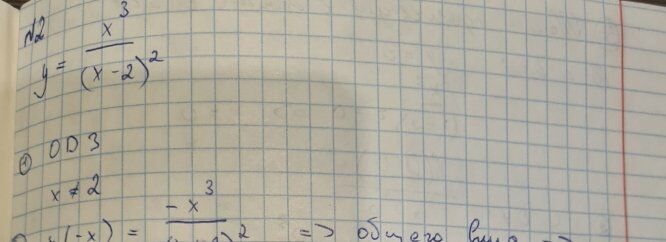 №2
y = x³/(x-2)²
① ОДЗ
x ≠ 2
(-x) = -x³ ² => общего